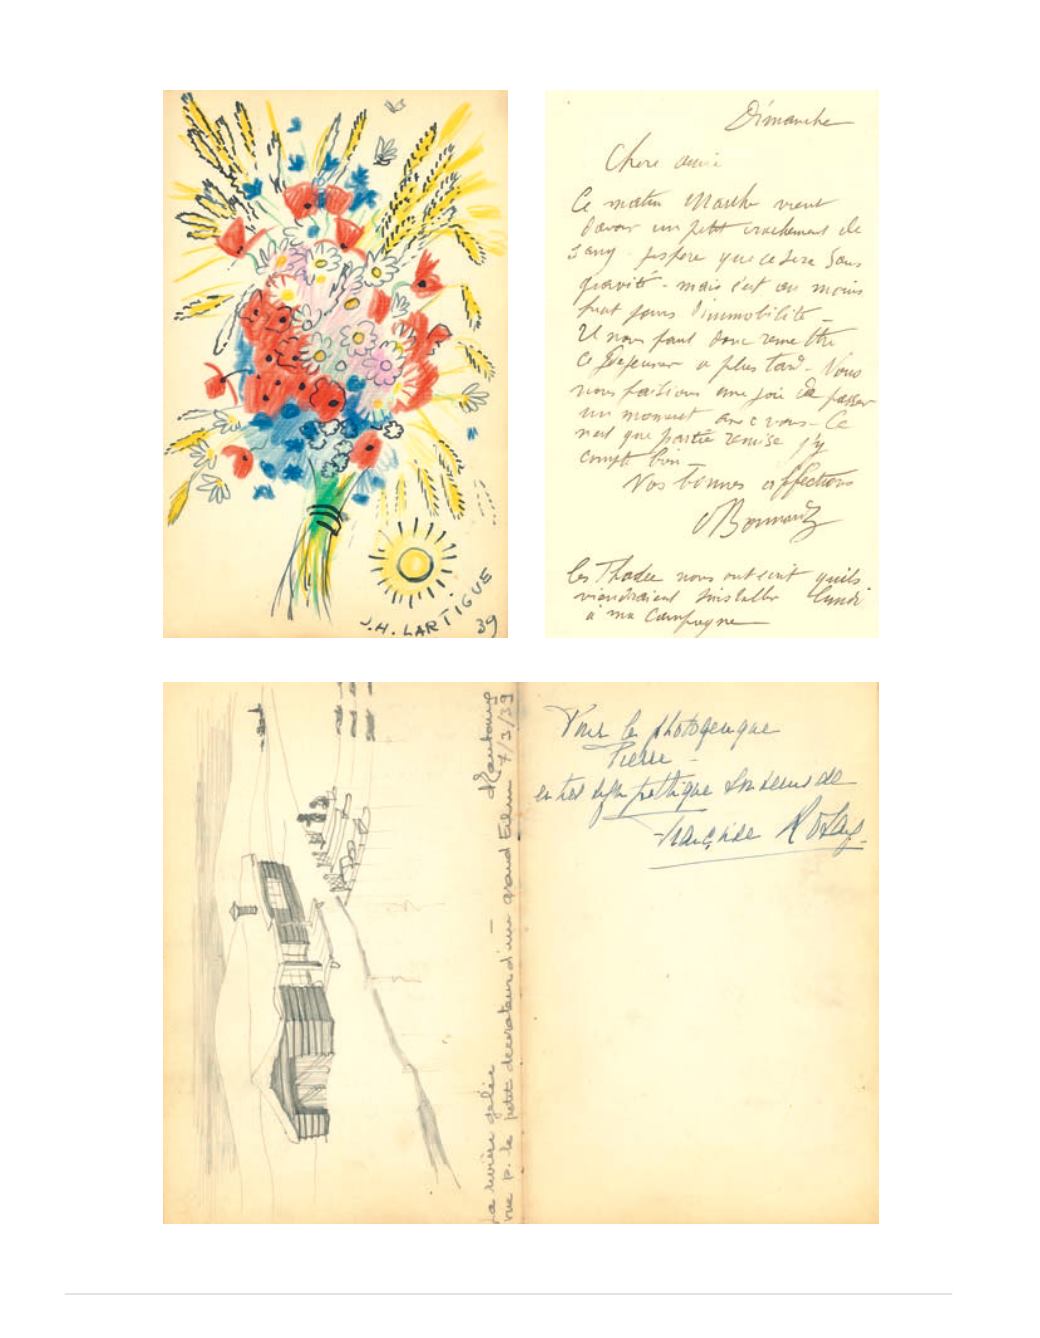 J.H. LARTIGUE
39
Dimanche
Chere amie
Ce matin Marthe vient
d'avoir un petit crachement de
sang. j'espere que ce sera sans
gravité - mais c'est au moins
huit jours d'immobilité -
Il nous faut donc remettre
ce dejeuner a plus tard - Nous
nous faisions une joie de passer
un moment avec vous - Ce
n'est que partie remise j'y
compte bien -
Vos bonnes affections
Bonnard
les Thadee nous ont ecrit qu'ils
viendraient s'installer lundi
à ma Campagne
La rivière gelée -
vue p. le petit decorateur d'un grand Film 7/3/39
Pour le photogenique
Pierre -
en tres sympathique souvenir de
Françoise Rosay